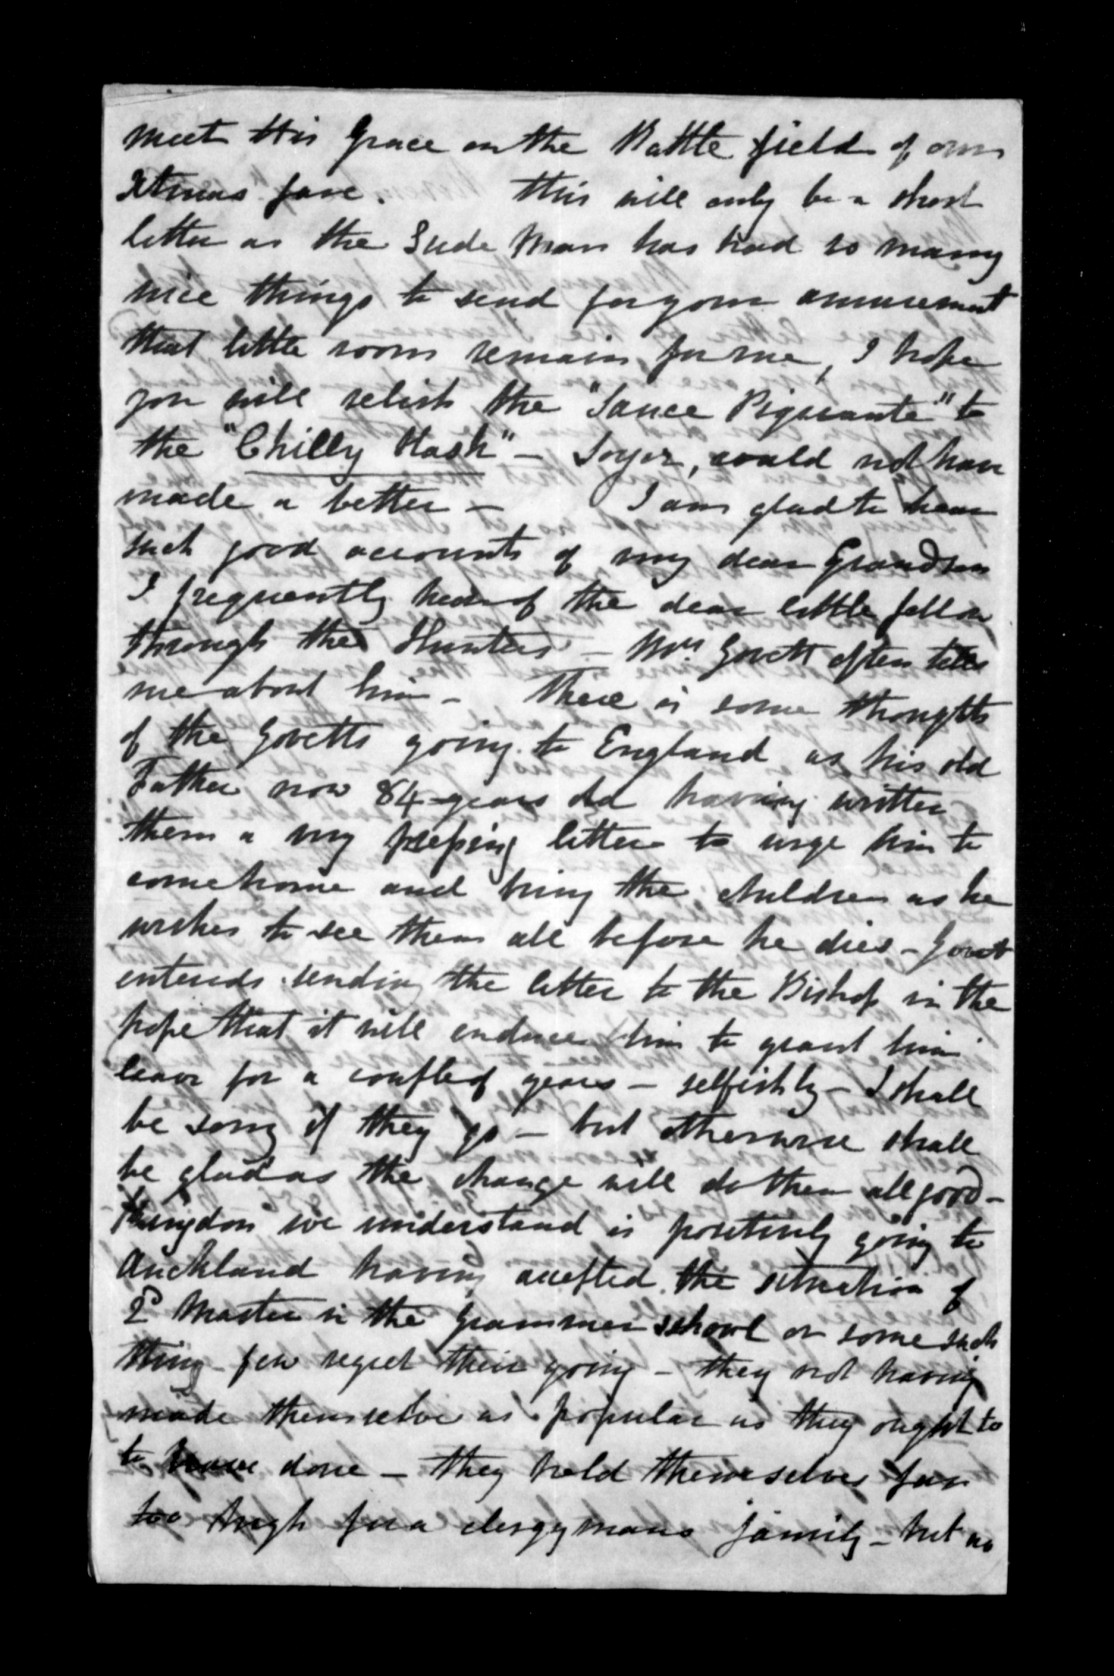 meet His Grace on the Battle field of our
Xtmas fare. This will only be a short
letter as the Gude Man has had so many
nice things to send for your amusement
that little room remains for me, I hope
you will relish the "Sauce Piquante" to
the "Chilly Hash" - Soyer, could not have
made a better - I am glad to hear
such good accounts of my dear Grandson
I frequently hear of the dear little fellow
through the Hunters - Mrs Govett often tells
me about him - There is some thoughts
of the Govetts going to England as his old
Father now 84 years old having written
them a very pressing letter to urge him to
come home and bring the children as he
wishes to see them all before he dies - Govett
entends sending the letter to the Bishop in the
hope that it will enduce him to grant him
leave for a couple of years - selfishly - I shall
be sorry if they go - but otherwise shall
be glad as the change will do them all good -
we understand is positively going to
Auckland having accepted the situation of
2d Master in the Grammer school or some such
thing - few regret their going - they not having
made themselve as popular as they ought to
to have done - they held themselves far
too high for a clergymans family - but as